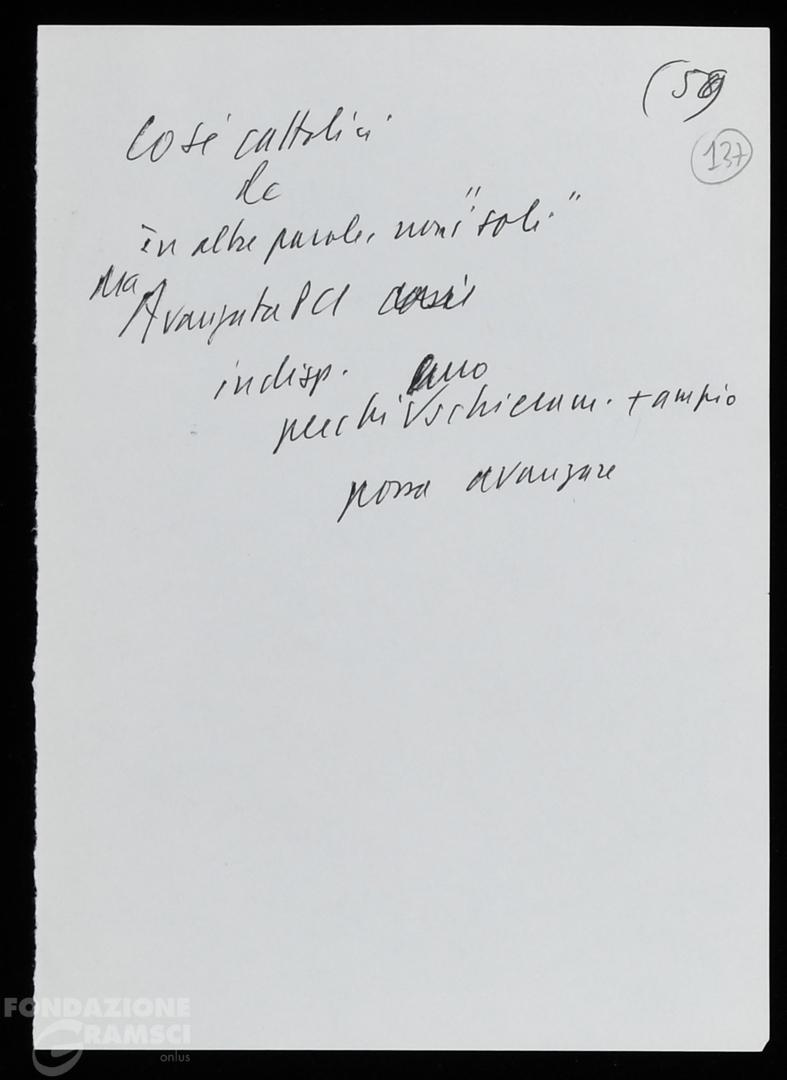 (59)
137
Così cattolici
dc
in altre parole, non "soli"
Ma Avanzata PCI
indisp.
perché uno schieram. + ampio
possa avanzare
FONDAZIONE
GRAMSCI
onlus